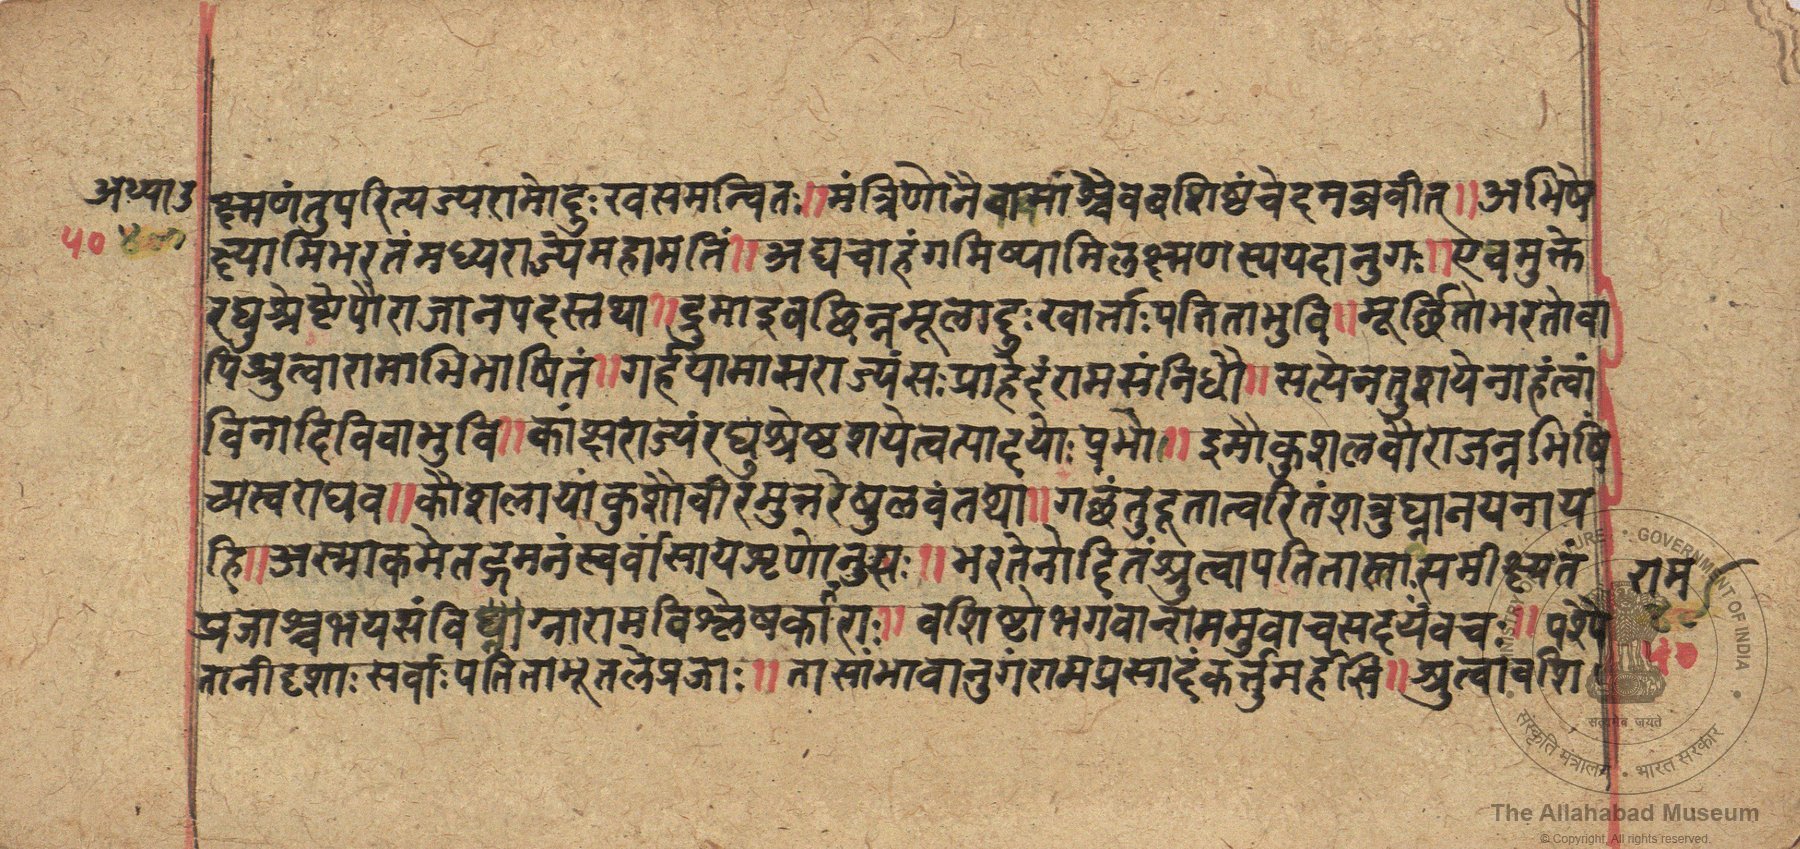 अध्या उ
५०
क्ष्मणंतुपरित्यज्यरामोदुःखसमन्वितः॥मंत्रिणोनैगमांश्चैववशिष्टंचेदमब्रवीत्॥अभिषे
क्ष्यामिभरतंमध्यराज्येमहामतिं॥अद्यचाहंगमिष्यामिलक्ष्मणस्यपदानुगः॥एवमुक्ते
रघुश्रेष्टेपौराजानपदस्तथा॥द्रुमाइवछिन्नमूलादुःखार्त्ताःपतिताभुवि॥मूर्छितोभरतोवा
पिश्रुत्वारामाभिभाषितं॥गर्हयामासराज्यंसःप्राहेदंरामसंनिधौ॥सत्येनतुशयेनाहंत्वां
विनादिविवाभुवि॥कांक्षेराज्यंरघुश्रेष्ठशयेत्वत्पादयोःप्रभो॥इमौकुशलवौराजन्नभिषिं
च्यस्वराघव॥कौशलायांकुशौवीरमुत्तरेषुलवंतथा॥गछंतुदूतात्वरितंशत्रुघ्नानयनाय
हि॥अस्माकमेतद्गमनंस्वर्वासायशृणोनुसः॥भरतेनोदितंश्रुत्वापतितास्ताःसमीक्ष्यतं
प्रजाश्चभयसंविग्नारामविश्लेषकातराः॥वशिष्टोभगवान्राममुवाचसदयंवचः॥पश्यै
तानीदृशाःसर्वाःपतिताभूतलेप्रजाः॥तासांभावानुगंरामप्रसादंकर्त्तुमर्हसि॥श्रुत्वावशि
राम
५०
MINISTRY OF CULTURE • GOVERNMENT OF INDIA
सत्यमेव जयते
संस्कृति मंत्रालय • भारत सरकार
The Allahabad Museum
© Copyright, All rights reserved.